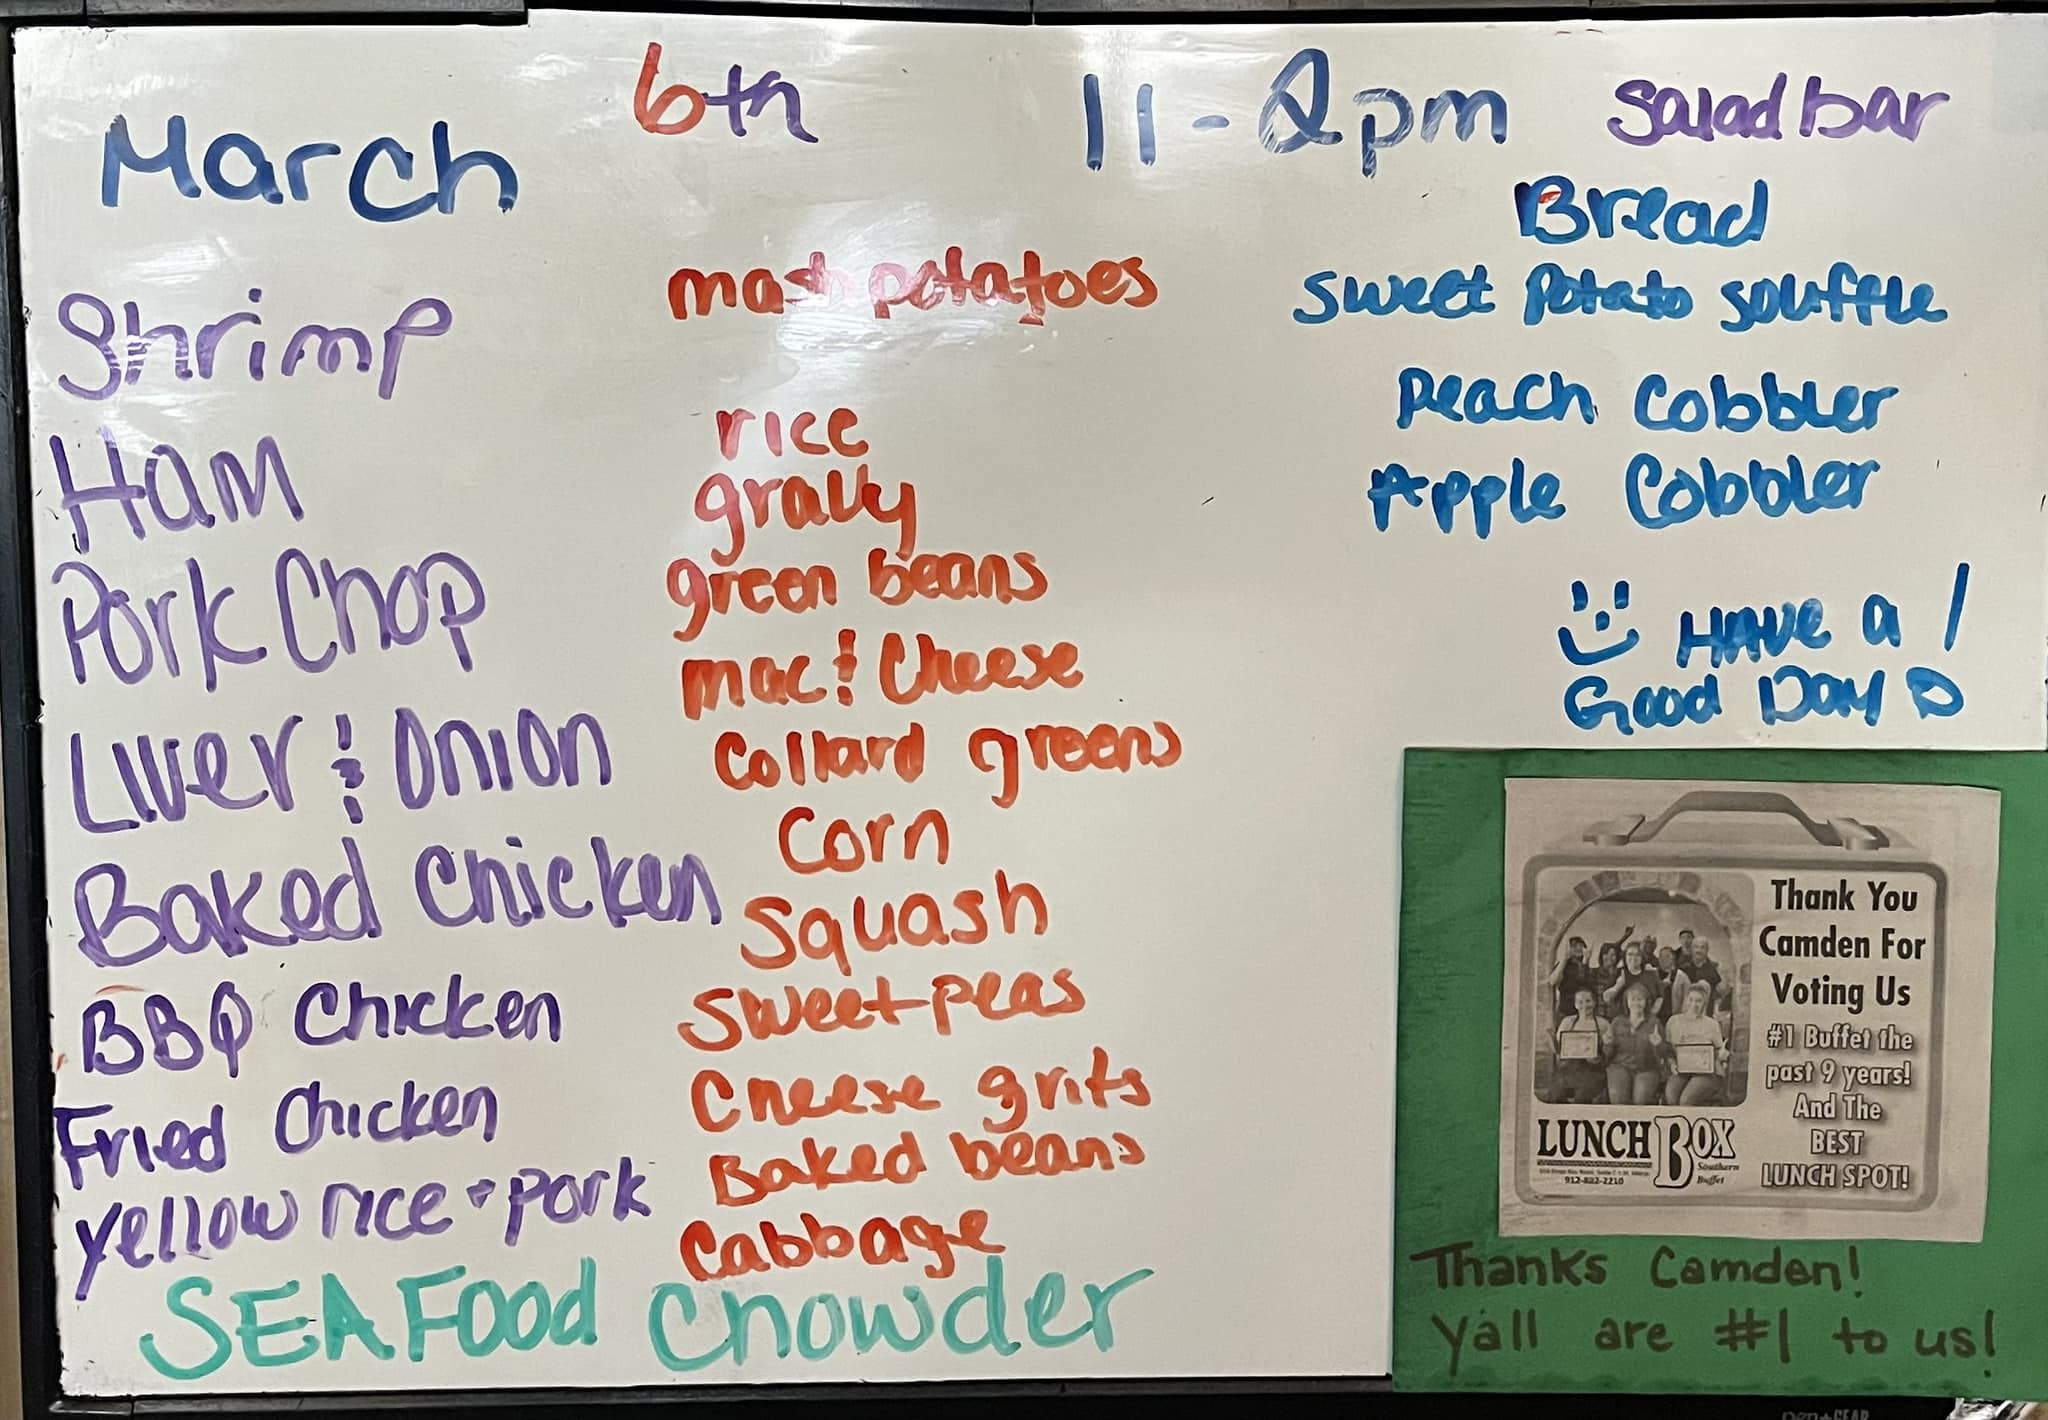 March 6th 11-2pm
Shrimp
Ham
Pork Chop
Liver & Onion
Baked Chicken
BBQ Chicken
Fried Chicken
yellow rice + pork
SEAFood Chowder
mash potatoes
rice
gravy
green beans
mac & Cheese
Collard greens
Corn
Squash
Sweet peas
Cheese grits
Baked beans
Cabbage
Salad bar
Bread
Sweet Potato Souffle
Peach Cobbler
Apple Cobbler
Have a
Good Day
Thank You
Camden For
Voting Us
#1 Buffet the
past 9 years!
And The
BEST
LUNCH SPOT!
LUNCH BOX
Southern
Buffet
912-882-2210
Thanks Camden!
Y'all are #1 to us!